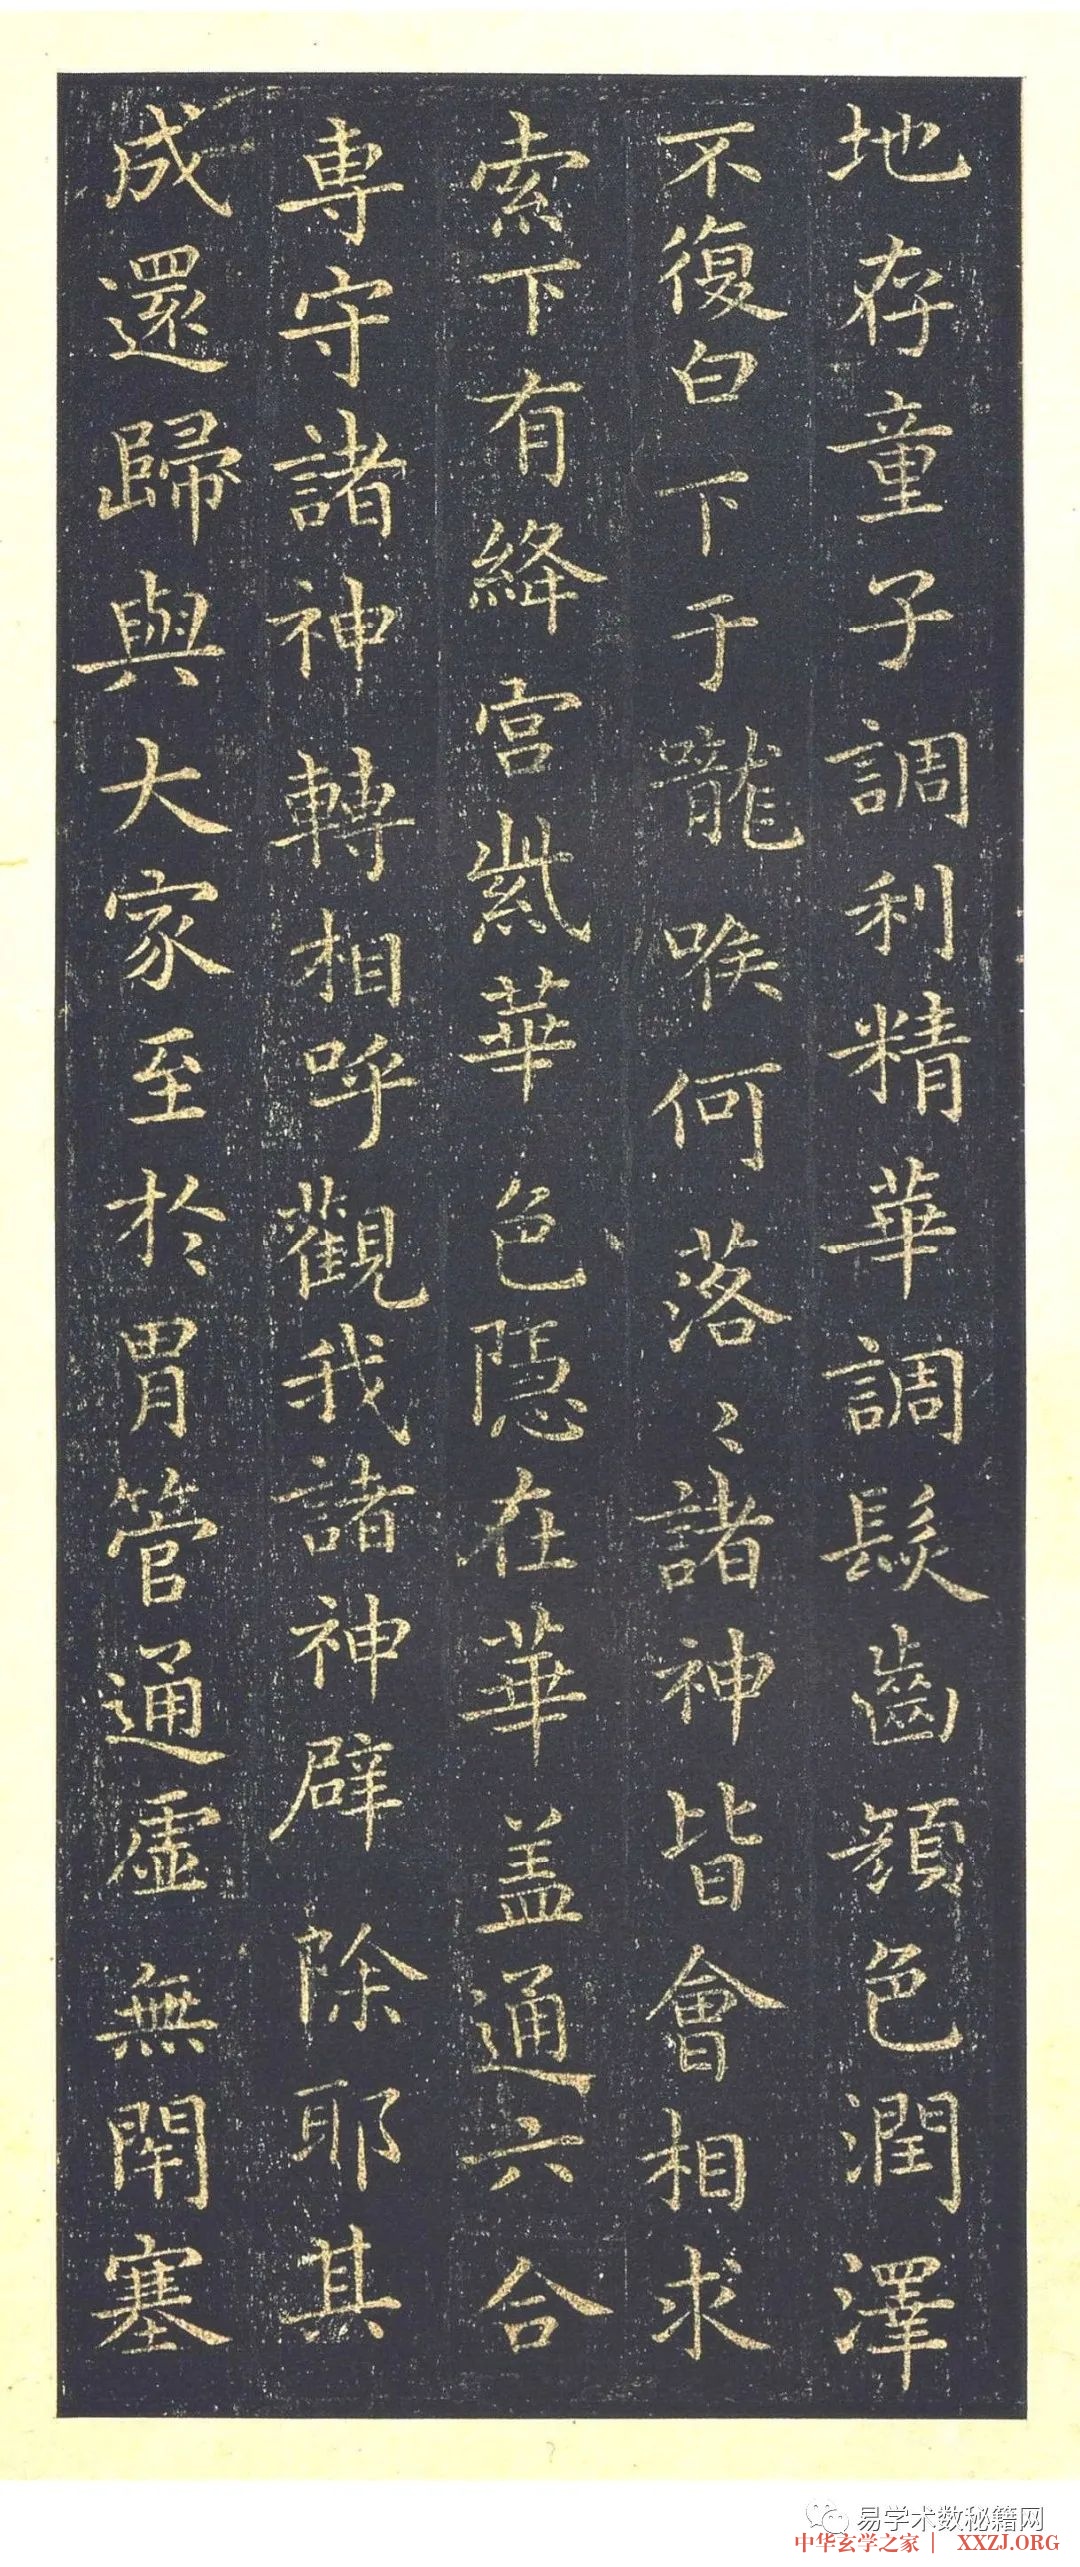 地存童子調利精華調髮齒顏色潤澤
不復白下于嚨喉何落〻諸神皆會相求
索下有絳宮紫華色隱在華盖通六合
專守諸神轉相呼觀我諸神辟除耶其
成還歸與大家至於胃管通虛無閇塞
易学术数秘籍网
中华玄学之家 | XXZJ.ORG